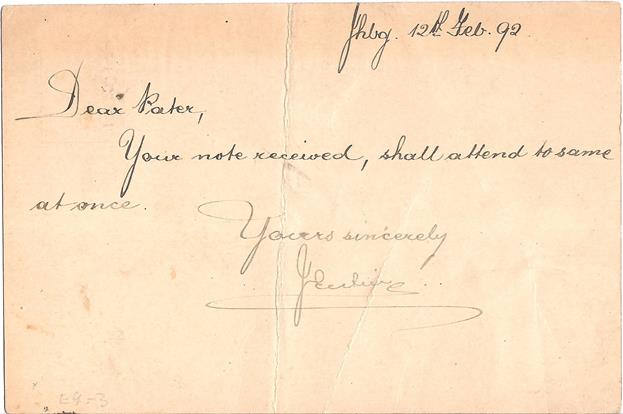 Jhbg. 12th Feb. 92.
Dear Pater,
Your note received, shall attend to same
at once.
Yours sincerely
E9-3